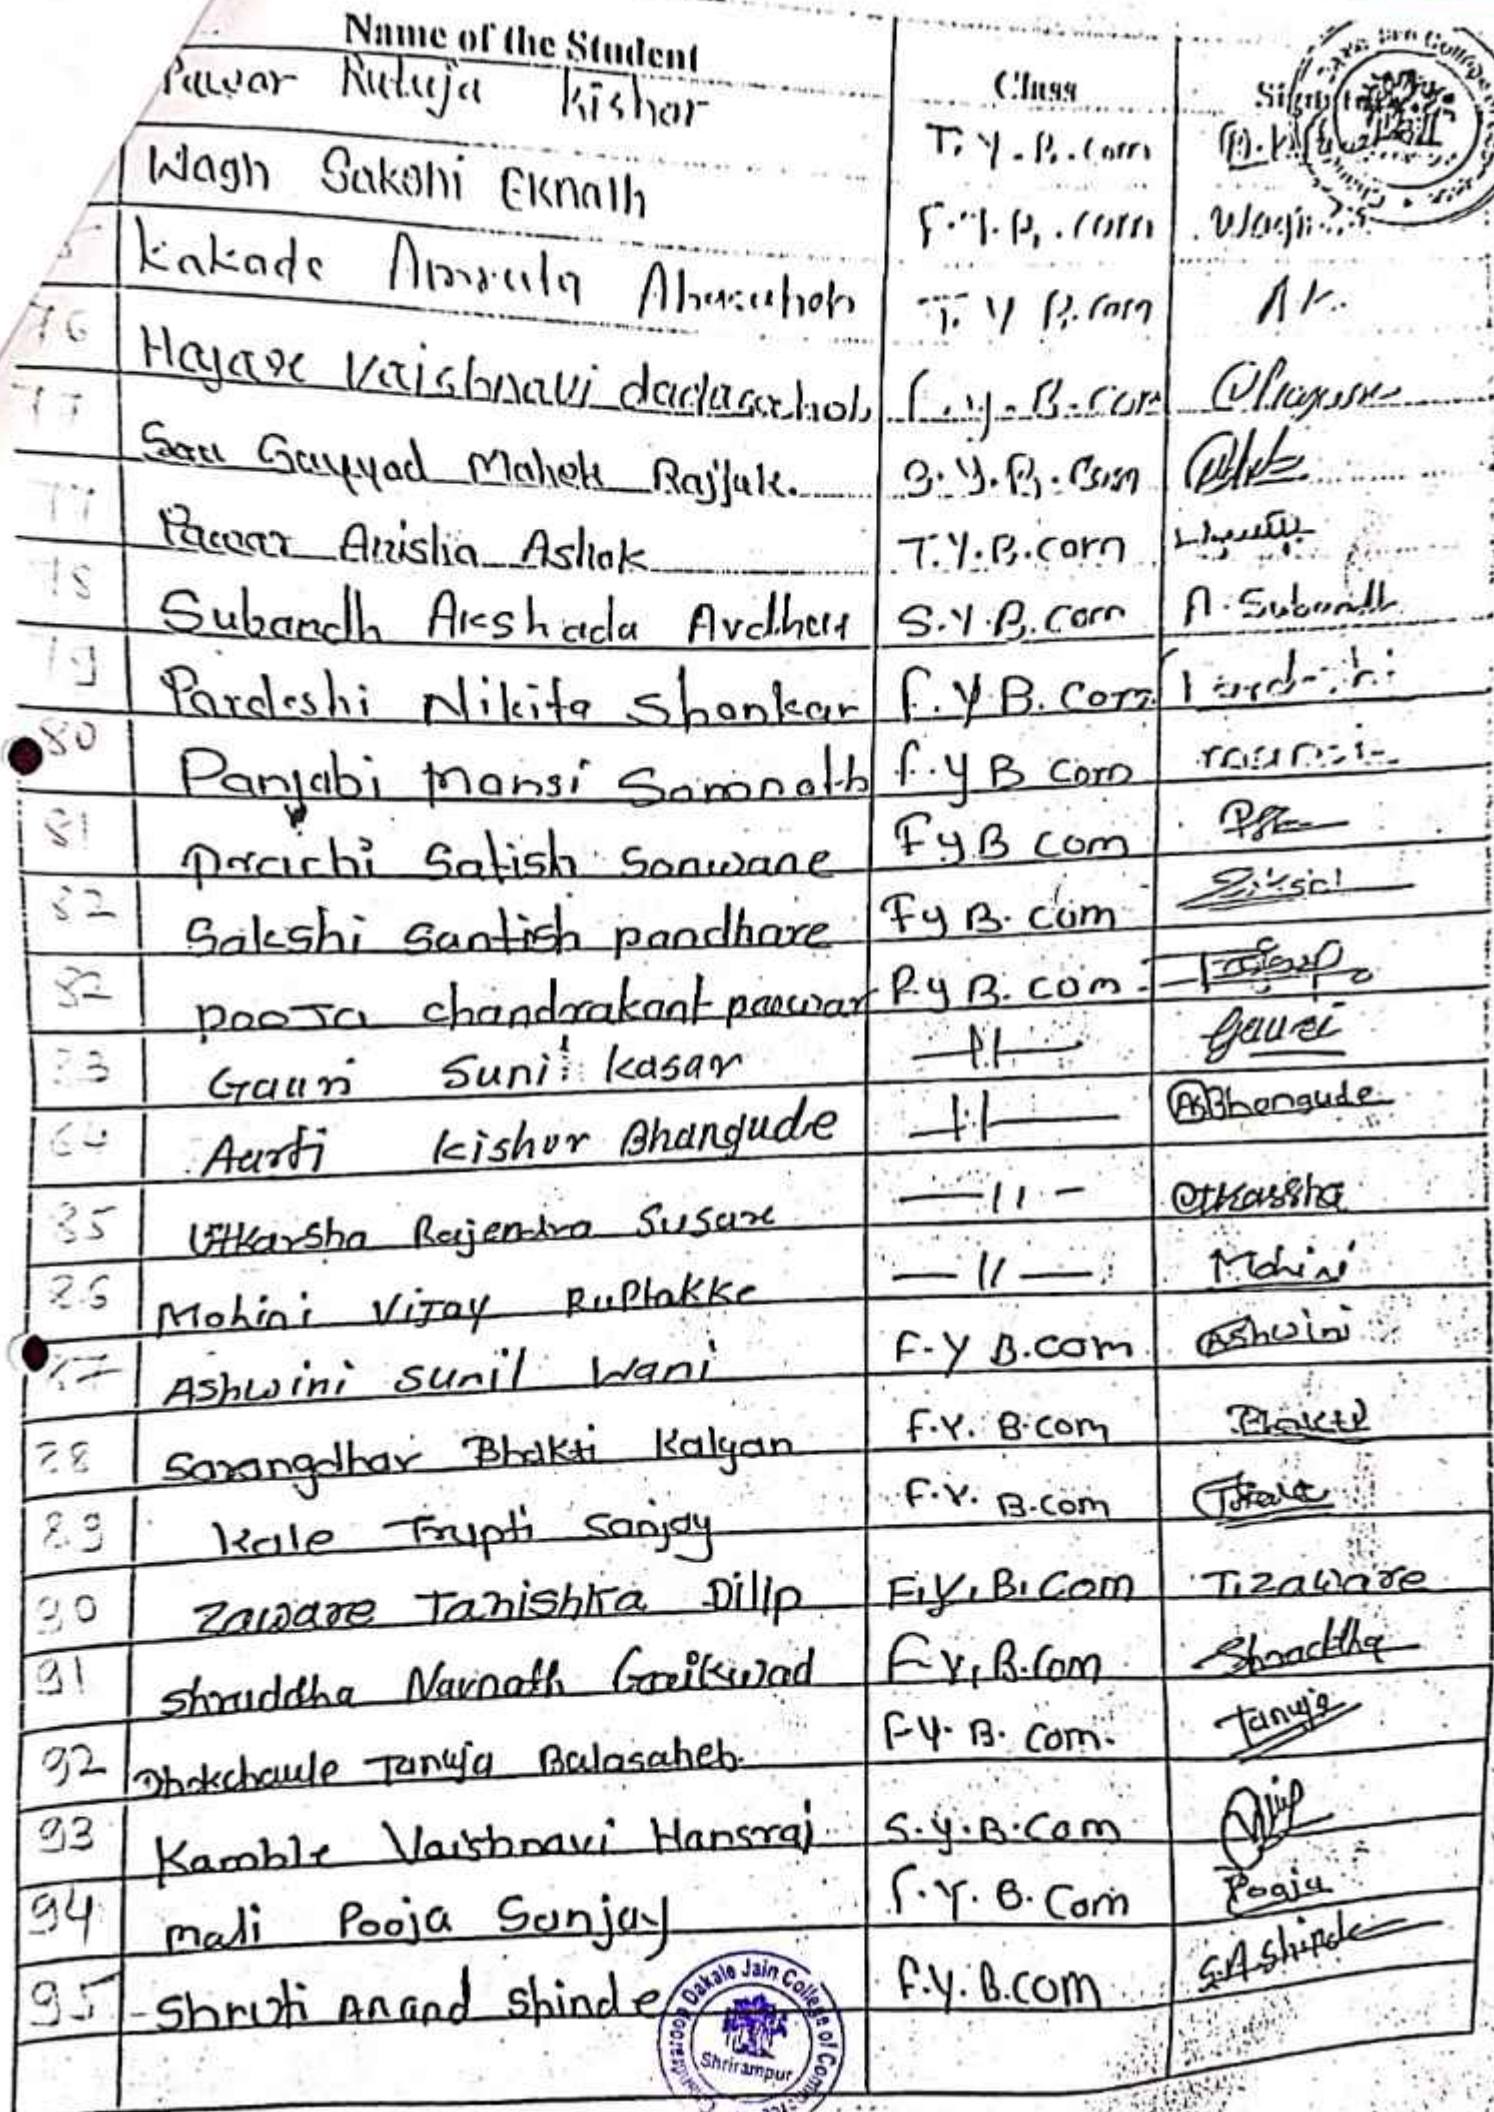 Name of the Student Class
Pawar Rutuja Kishor T.Y.B.com
Wagh Sakshi Eknath F.Y.B.com Wagh
Kakade T.Y B.com A K.
76 Hajare Vaishnavi dadasaheb F.y.B.com
77 Sayyad Mahek Rajjak. S.Y.B.Com
77 Pawar Anisha Ashok T.Y.B.com
78 Subandh Akshada Avdhut S.Y.B.com A.Subandh
79 Pardeshi Nikita Shankar F.Y.B.Com
80 Panjabi Mansi Somnath F.y B Com
81 Prachi Satish Sonwane FyB com
82 Sakshi Santish pandhare Fy B.com
82 Pooja chandrakant pawar F.y B.com
83 Gauri Sunil kasar —11— Gauri
84 Aarti kishor Bhangude —11— ABhangude
85 Utkarsha Rajendra Susare —11— Utkarsha
86 Mohini Vijay Ruptakke —11— Mohini
87 Ashwini Sunil Wani F.Y B.com Ashwini
88 Sarangdhar Bhakti Kalyan F.Y. B.com Bhakti
89 Kale Trupti Sanjay F.Y. B.com
90 Zaware Tanishka Dilip F.Y.B.Com T.Zaware
91 Shraddha Navnath Gaikwad F.Y.B.Com Shraddha
92 Dhokchaule Tanuja Balasaheb. F.Y.B.Com. Tanuja
93 Kamble Vaishnavi Hansraj S.y.B.Com
94 Mali Pooja Sanjay F.Y.B.Com Pooja
95 Shruti Anand Shinde F.Y.B.com S.A.Shinde
Dakale Jain College of
Shrirampur